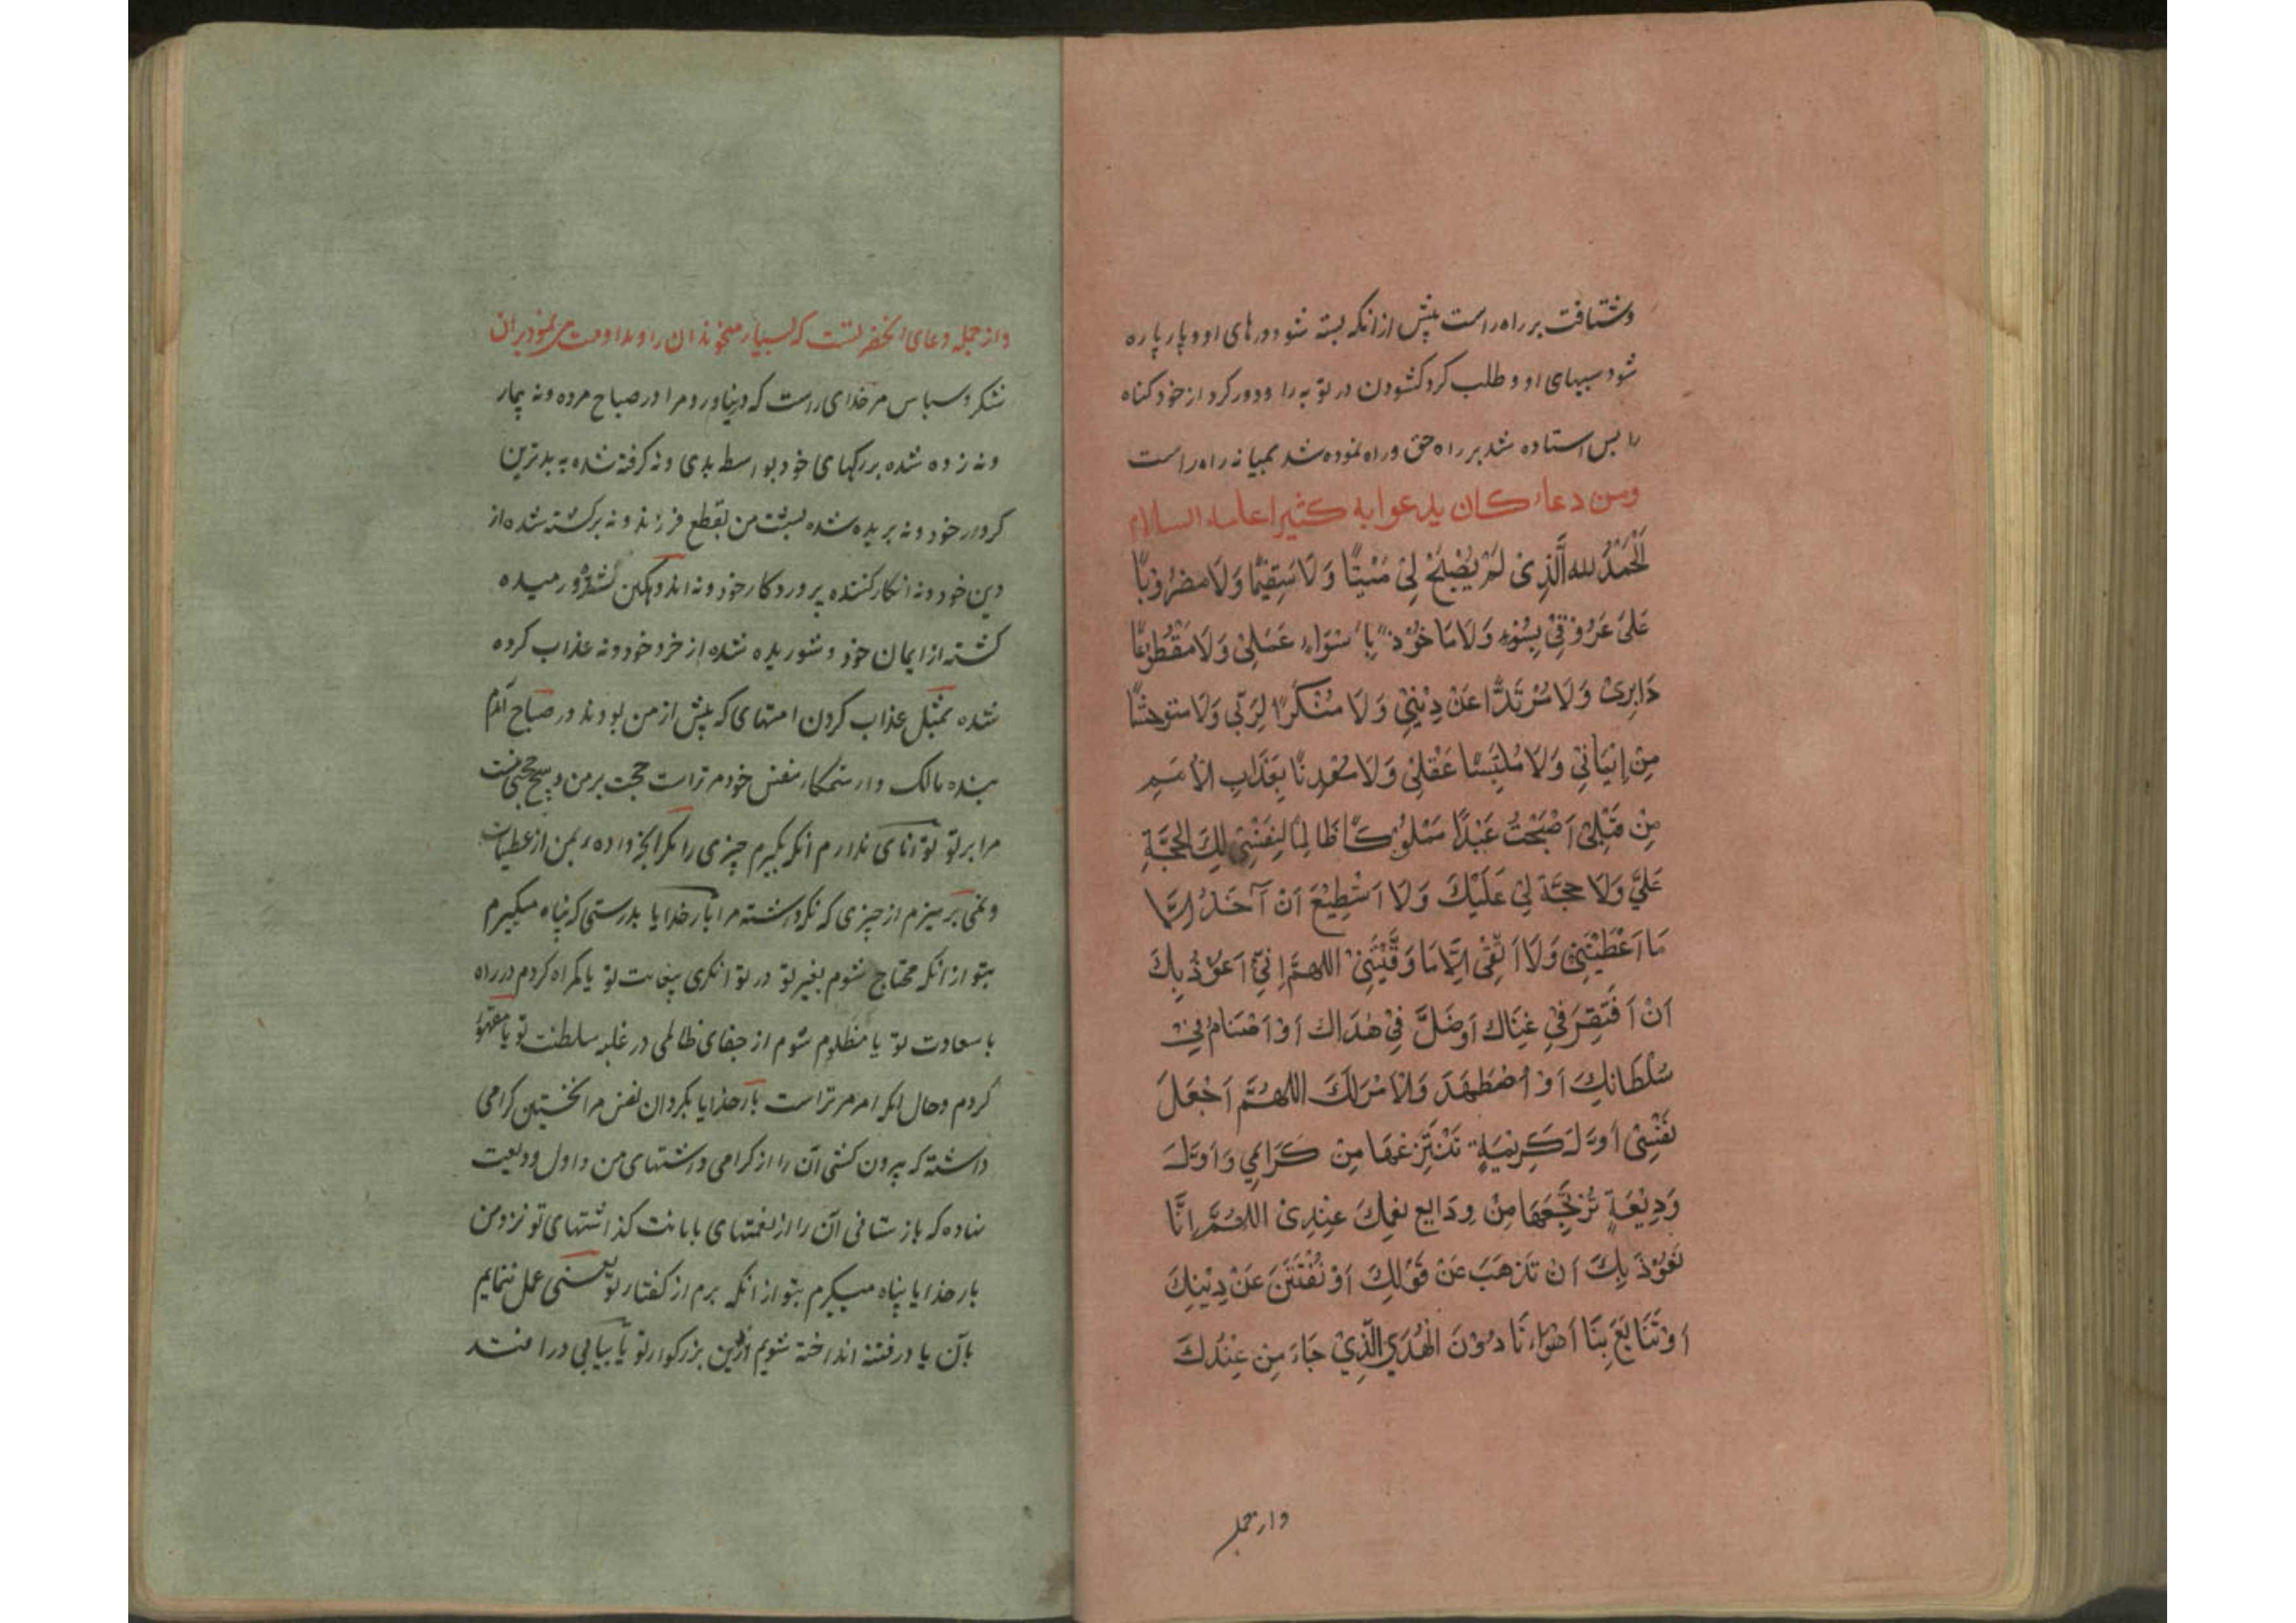 وشتافت بر راه راست پیش از انکه بسته شود درهای او و پاره پاره
شود سببهای او و طلب کرد کشودن در توبه را و دور کرد از خود کناه
را پس استاده شد بر راه حق و راه نموده شد بمیانه راه راست
ومن دعاء كان يدعوا به كثيرا عليه السلام
اَلْحَمْدُ للهِ الَّذِى لَمْ يُصْبِحْ لِىْ مَيِّتًا وَلَا سَقِيْمًا وَلَا مَضْرُوْبًا
عَلىٰ عَرُوْقِىْ بِسُوْءٍ وَلَا مَا خُوْذ بِاَسْوَاءِ عَمَلِىْ وَلَا مَقْطُوْعًا
دَابِرِىْ وَلَا مُرْتَدًّا عَنْ دِيْنِىْ وَلَا مُنْكَرًا لِرَبّى وَلَا مستوحشًا
مِنْ اِيْمَانِىْ وَلَا مُلْتَبِسًا عَقْلِىْ وَلَا مُعَذَّبًا بِعَذَابِ الْاُمَمِ
مِنْ قَبْلِىْ اَصْبَحْتُ عَبْدًا مَمْلُوْكًا ظَالِمًا لِنَفْسِىْ لكَ الحُجَّةِ
عَلَىَّ وَلَا حُجَّةَ لِىْ عَلَيْكَ وَلَا اَسْتَطِيْعَ اَنْ آخُذَ اِلَّا
مَا اَعْطَيْتَنِىْ وَلَا اَتَّقِىْ اِلَّا مَا وَقَّيْتَنِىْ اللهمَّ اِنِّىْ اَعُوْذُ بِكَ
اَنْ اَفْتَقِرَ فِىْ غِنَاكَ اَوْ ضَلَّ فِىْ هُدَاكَ اَوْ اُضَامَ فِىْ
سُلْطَانِكَ اَوْ اُضْطَهَدَ وَالْاَمْرُ لَكَ اللهُمَّ اجْعَلْ
نَفْسِىْ اَوَّلَ كَرِيْمَةٍ تَنْتَزِعُهَا مِنْ كَرَائِمِى وَاَوَّلَ
وَدِيْعَةٍ تُرْتَجِعُهَا مِنْ وَدَايِعِ نِعَمِكَ عِنْدِىْ اللهُمَّ اِنَّا
نَعُوْذُ بِكَ اَنْ تَذْهَبَ عَنْ قَوْلِكَ اَوْ نُفْتَتَنَ عَنْ دِيْنِكَ
اَوْ تَتَابَعَ بِنَا اَهْوَاءنَا دُوْنَ الْهُدَى الَّذِىْ جَاءَ مِن عِنْدِكَ
واز جمله
واز جمله دعای انحضرتست که بسیار میخواند ان را و مداومت می نمود بران
شکر و سپاس مر خدای راست که درنیاورد مرا در صباح مرده و نه بیمار
و نه زده شده بر رکهای خود بواسطه بدی و نه کرفته شده به بدترین
کردار خود و نه بریده شده پشت من بقطع فرزند و نه برکشته شده از
دین خود و نه انکار کننده پروردکار خود و نه اندوهکین و رمیده
کشته از ایمان خود و شوریده شده از خرد خود و نه عذاب کرده
شده بمثل عذاب کردن امتهای که پیش از من بودند در صباح آمدم
بنده مالک دار ستمکار بنفس خود مر تراست حجت بر من و هیچ حجتی نیست
مرا بر تو توانای ندارم انکه بکیرم چیزی را مکر انچه داده بمن از عطیات
و نمی پرهیزم از چیزی که نکه داشته مرا بار خدایا بدرستی که پناه میکیرم
بتو از انکه محتاج شوم بغیر تو در توانکری بیغایت تو یا کمراه کردم در راه
با سعادت تو یا مظلوم شوم از جفای ظالمی در غلبه سلطنت تو یا مقهور
کردم و حال انکه امر مر تراست بار خدایا بکردان نفس مرا نخستین کرامی
داشته که بیرون کنی آن را از کرامی داشتهای من و اول ودیعت
نهاده که باز ستانی آن را از نعمتهای بامانت کذاشتهای تو نزد من
بار خدایا پناه میکیرم بتو از انکه برم از کفتار تو یعنی عمل ننمایم
بآن یا در فتنه انداخته شویم از دین بزرکوار تو یا بپیاپی در افتد